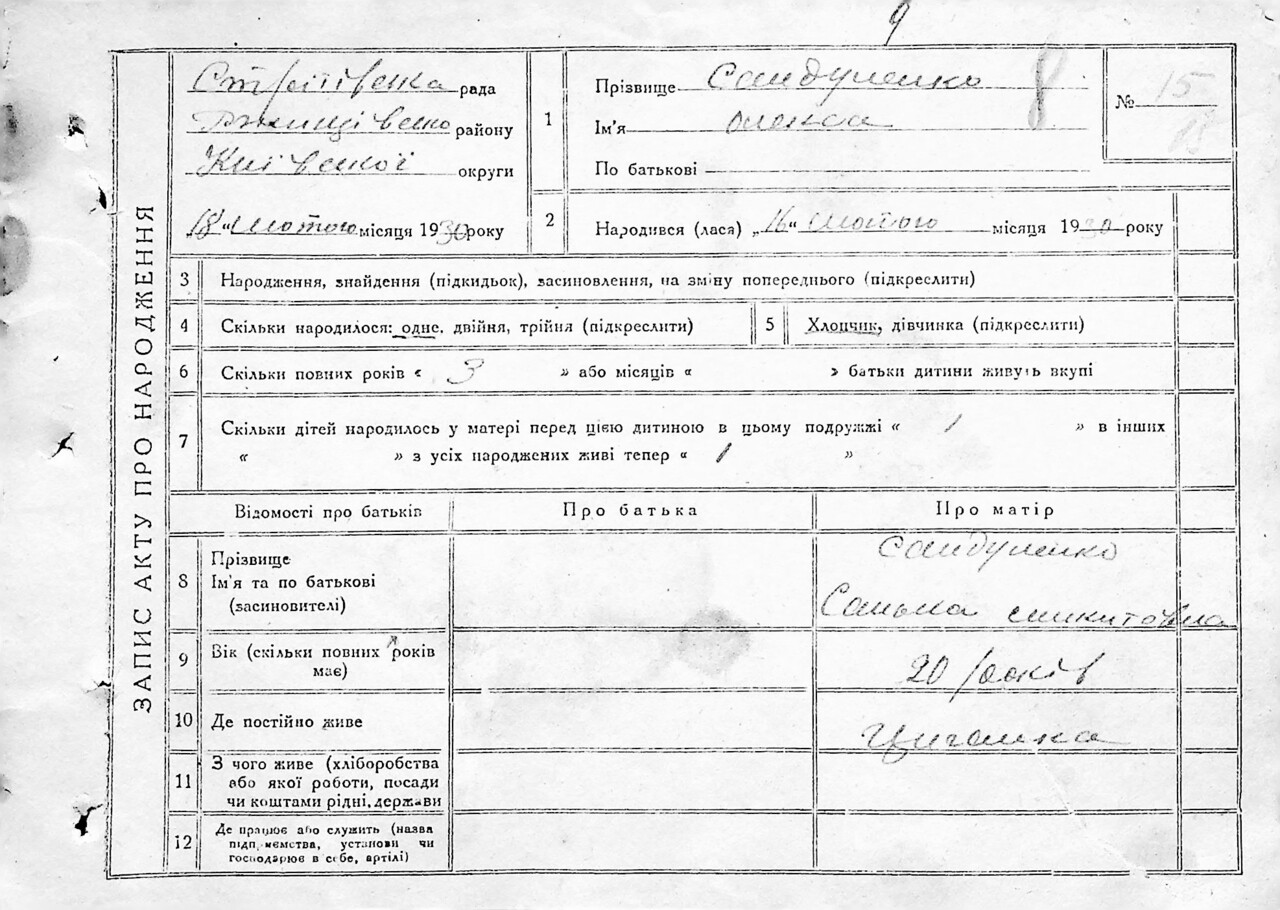 9
ЗАПИС АКТУ ПРО НАРОДЖЕННЯ
рада
району
Київської округи
„18“ лютого місяця 1930 року
1 Прізвище Сандуленко 8
Ім'я Олекса
По батькові
№ 15
18
2 Народився (лася) „16“ лютого місяця 1930 року
3 Народження, знайдення (підкидьок), засиновлення, на зміну попереднього (підкреслити)
4 Скільки народилося: одне, двійня, трійня (підкреслити)
5 Хлопчик, дівчинка (підкреслити)
6 Скільки повних років « 3 » або місяців « » батьки дитини живуть вкупі
7 Скільки дітей народилось у матері перед цією дитиною в цьому подружжі « 1 » в інших
« » з усіх народжених живі тепер « 1 »
Відомості про батьків Про батька Про матір
8 Прізвище
Ім'я та по батькові
(засиновителі)
Сандуленко
Санька Микитовна
9 Вік (скільки повних років
має)
20 років
10 Де постійно живе
Циганка
11 З чого живе (хліборобства
або якої роботи, посади
чи коштами рідні, держави
12 Де працює або служить (назва
підприємства, установи чи
господарює в себе, артілі)